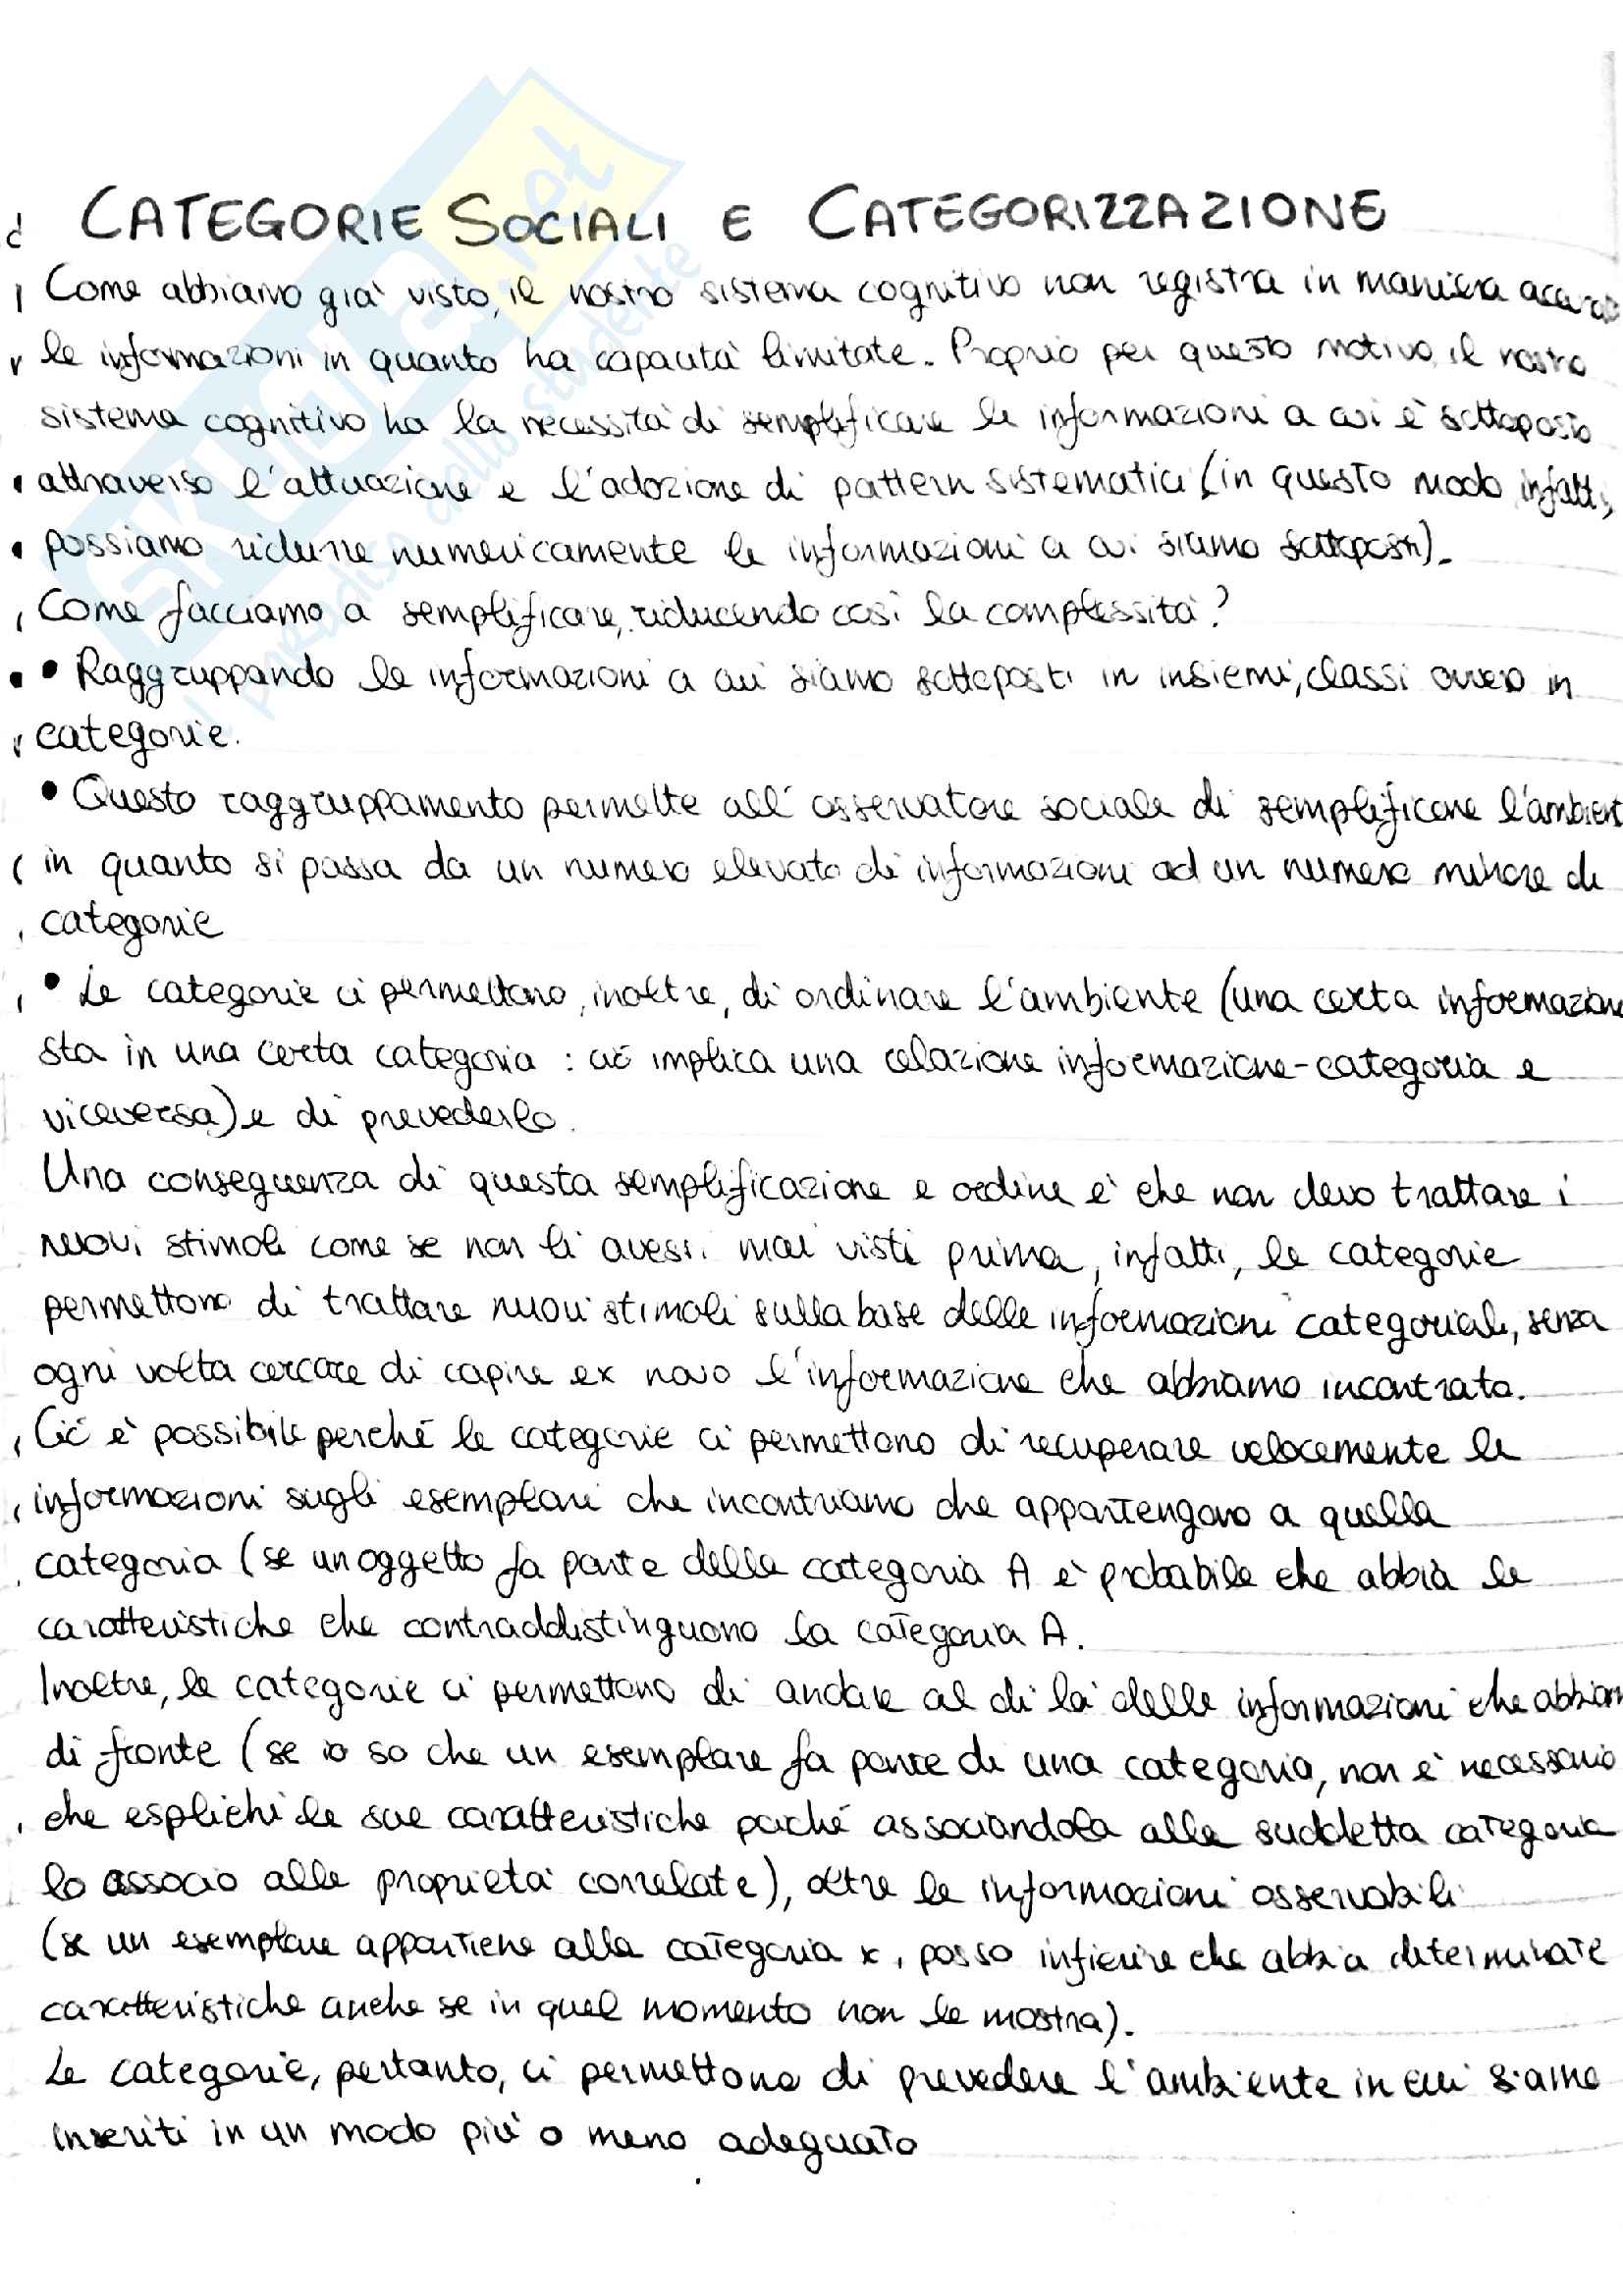 CATEGORIE SOCIALI E CATEGORIZZAZIONE
Come abbiamo già visto, il nostro sistema cognitivo non registra in maniera accurat
le informazioni in quanto ha capacità limitate. Proprio per questo motivo, il nostro
sistema cognitivo ha la necessità di semplificare le informazioni a cui è sottoposto
attraverso l'attuazione e l'adozione di pattern sistematici (in questo modo, infatti,
possiamo ridurre numericamente le informazioni a cui siamo sottoposti).
Come facciamo a semplificare, riducendo così la complessità?
• Raggruppando le informazioni a cui siamo sottoposti in insiemi, classi ovvero in
categorie.
• Questo raggruppamento permette all'osservatore sociale di semplificare l'ambient
in quanto si passa da un numero elevato di informazioni ad un numero minore di
categorie
• Le categorie ci permettono, inoltre, di ordinare l'ambiente (una certa informazione
sta in una certa categoria : ciò implica una relazione informazione-categoria e
viceversa) e di prevederlo.
Una conseguenza di questa semplificazione e ordine è che non devo trattare i
nuovi stimoli come se non li avessi mai visti prima, infatti, le categorie
permettono di trattare nuovi stimoli sulla base delle informazioni categoriali, senza
ogni volta cercare di capire ex novo l'informazione che abbiamo incontrato.
Ciò è possibile perché le categorie ci permettono di recuperare velocemente le
informazioni sugli esemplari che incontriamo che appartengono a quella
categoria (se un oggetto fa parte della categoria A è probabile che abbia le
caratteristiche che contraddistinguono la categoria A.
Inoltre, le categorie ci permettono di andare al di là delle informazioni che abbiam
di fronte (se io so che un esemplare fa parte di una categoria, non è necessario
che esplichi le sue caratteristiche poiché associandola alla suddetta categoria
lo associo alle proprietà correlate), oltre le informazioni osservabili
(se un esemplare appartiene alla categoria x, posso inferire che abbia determinate
caratteristiche anche se in quel momento non le mostra).
Le categorie, pertanto, ci permettono di prevedere l'ambiente in cui siamo
inseriti in un modo più o meno adeguato
SKUOLA.net
il paradiso dello studente